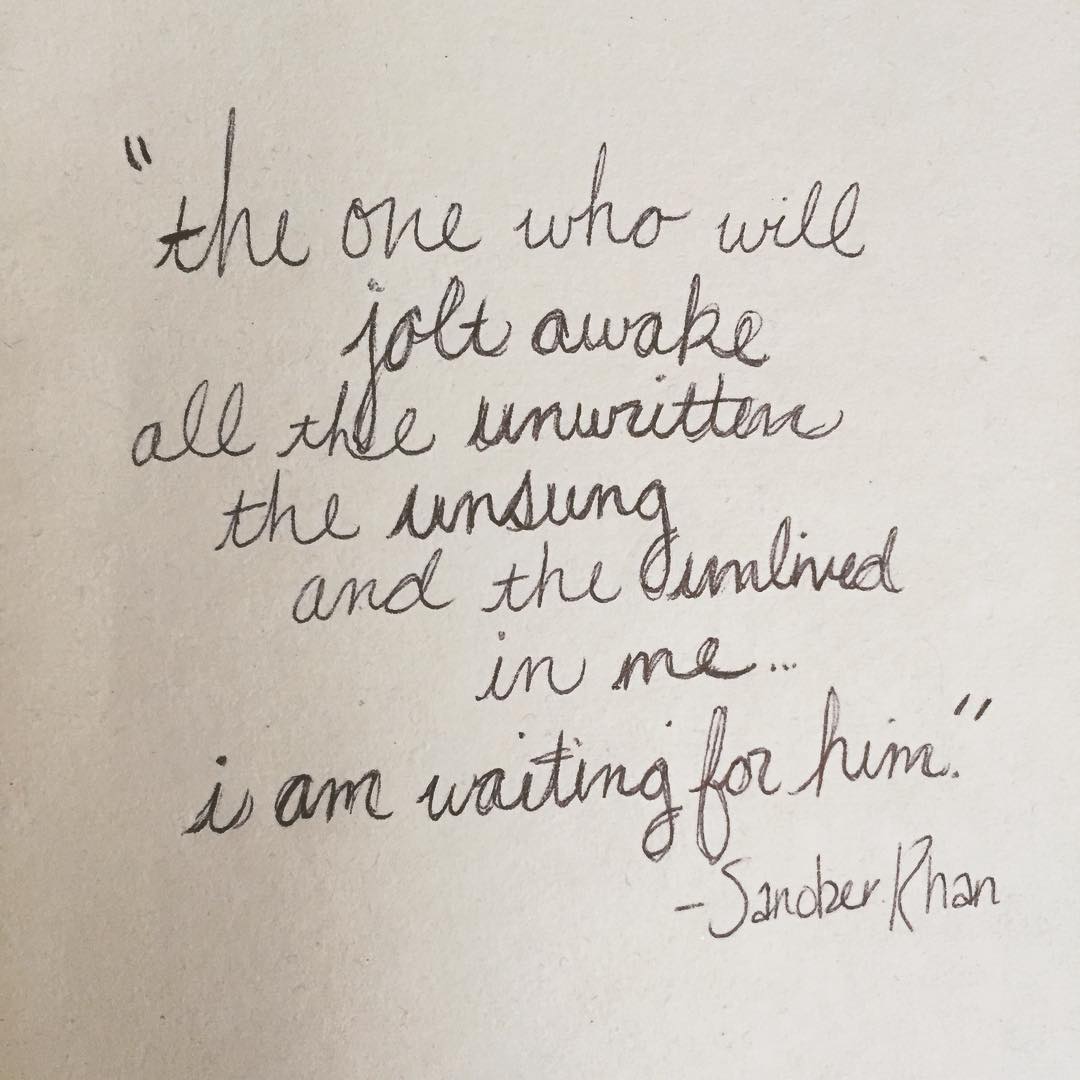 "the one who will
jolt awake
all the unwritten
the unsung
and the unlived
in me...
i am waiting for him."
-Sanober Khan